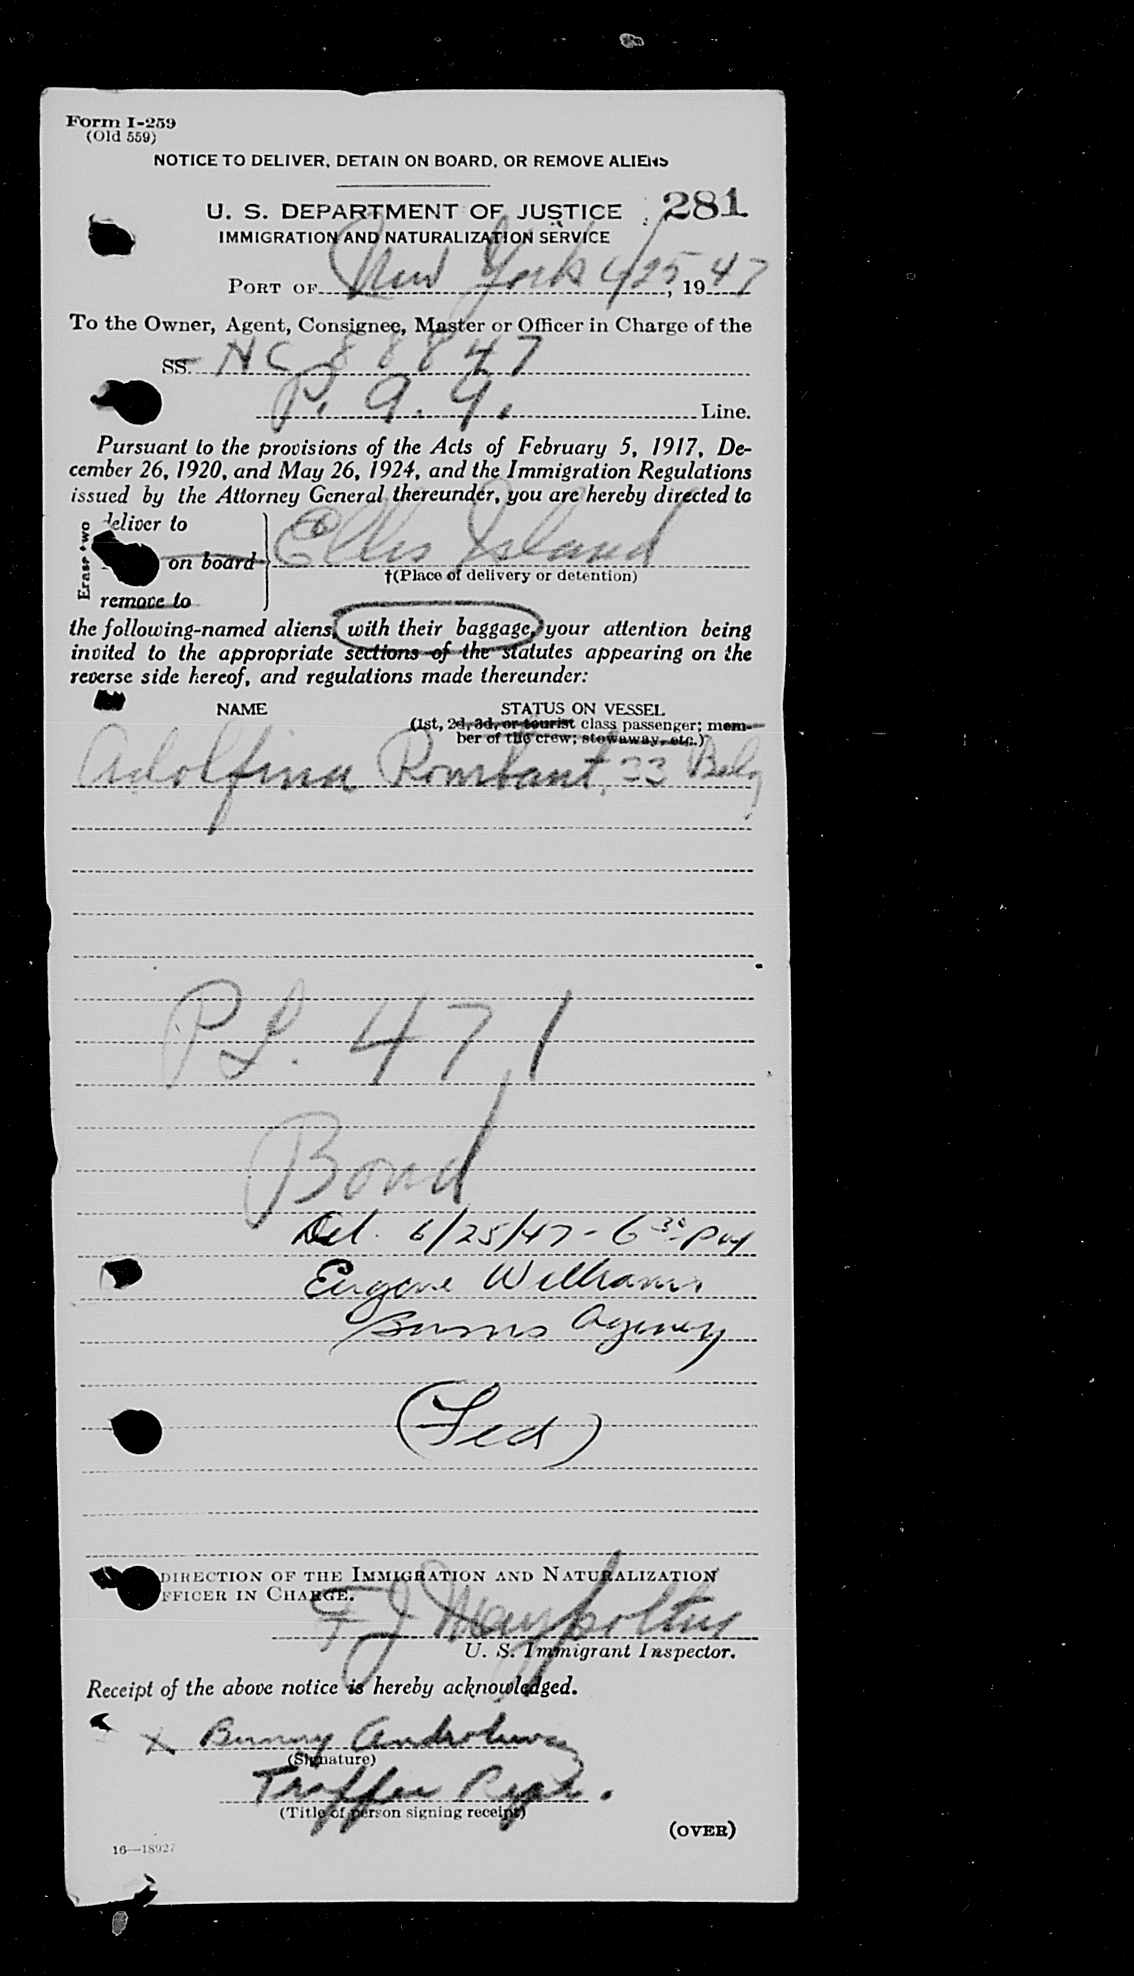 Form I-259
(Old 559)
NOTICE TO DELIVER, DETAIN ON BOARD, OR REMOVE ALIENS
U. S. DEPARTMENT OF JUSTICE 281
IMMIGRATION AND NATURALIZATION SERVICE
PORT OF New York 4/25, 1947
To the Owner, Agent, Consignee, Master or Officer in Charge of the
SS. NC 88847
P. A. A. Line.
Pursuant to the provisions of the Acts of February 5, 1917, De-
cember 26, 1920, and May 26, 1924, and the Immigration Regulations
issued by the Attorney General thereunder, you are hereby directed to
deliver to
Erase two on board Ellis Island
†(Place of delivery or detention)
remove to
the following-named aliens, with their baggage, your attention being
invited to the appropriate sections of the statutes appearing on the
reverse side hereof, and regulations made thereunder:
NAME STATUS ON VESSEL
(1st, 2d, 3d, or tourist class passenger; mem-
ber of the crew; stowaway, etc.)
Adolfina Rombaut, 33 Belg
P.L. 471
Bond
Del. 6/25/47 - 6 30 PM
Eugene Williams
Burns Agency
(Fed)
DIRECTION OF THE IMMIGRATION AND NATURALIZATION
FFICER IN CHARGE.
F J
U. S. Immigrant Inspector.
Receipt of the above notice is hereby acknowledged.
X Bunny
(Signature)
Traffic Repr.
(Title of person signing receipt)
(OVER)
16—18927